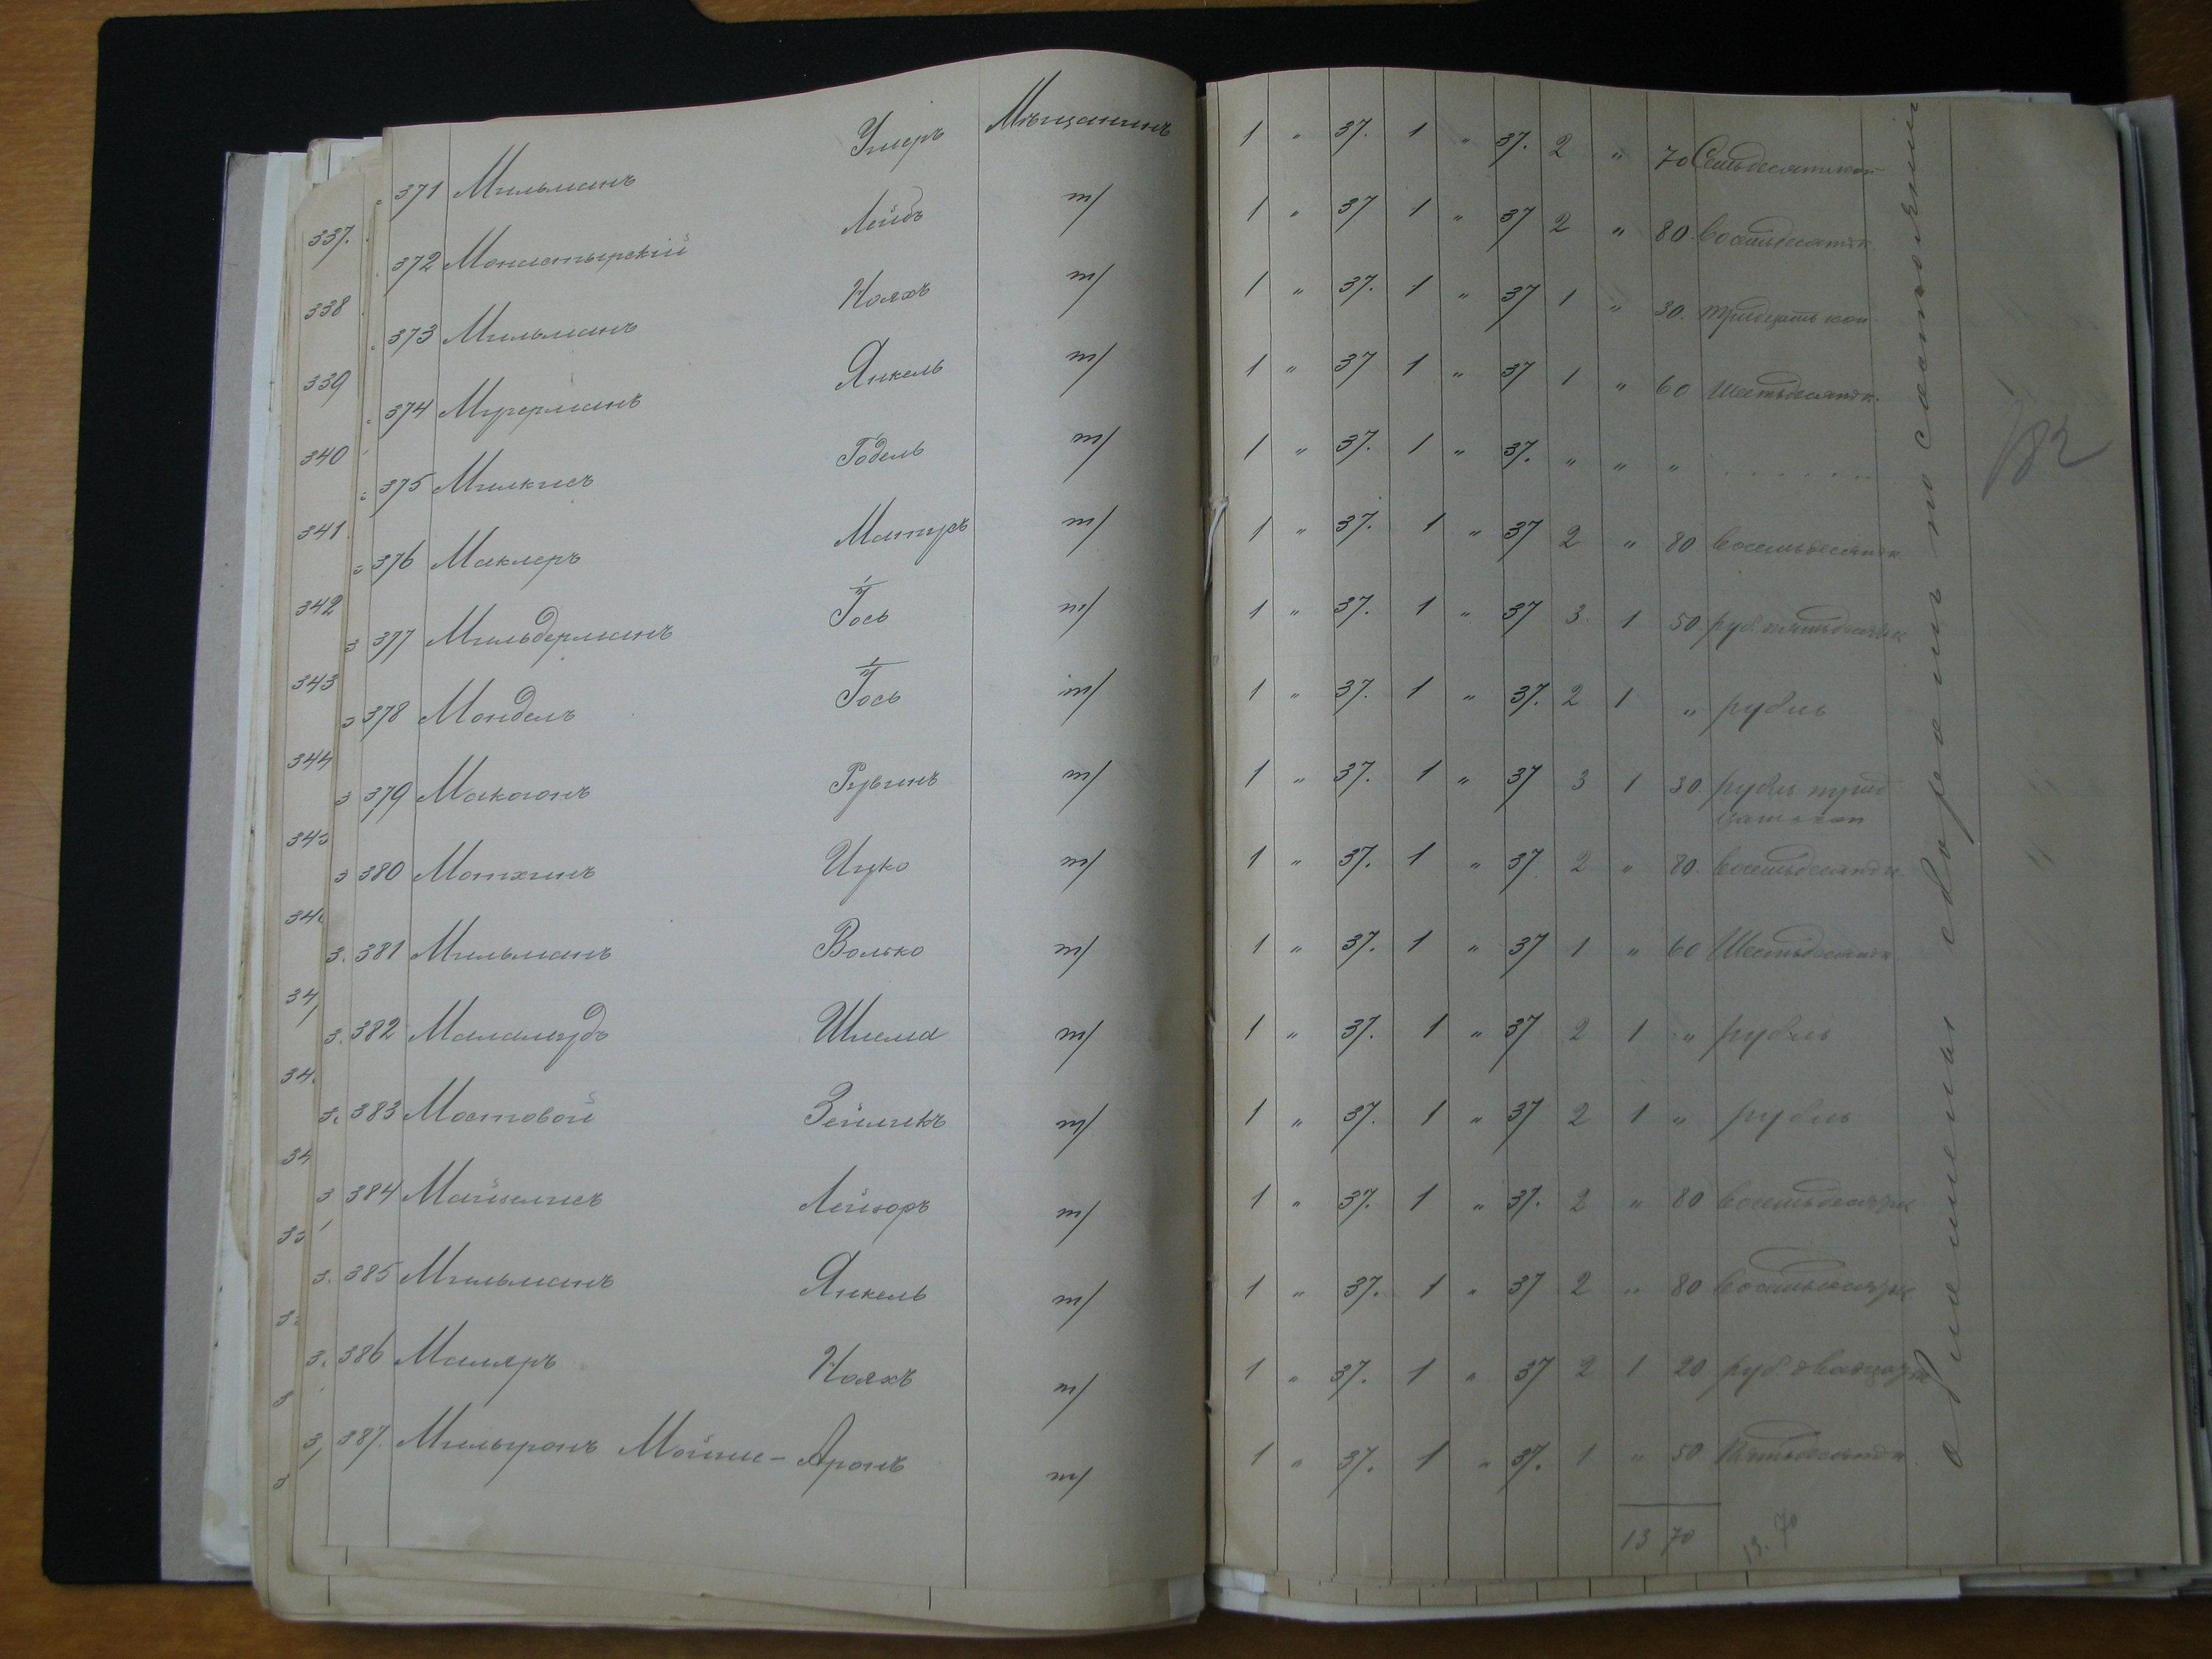 371 Мильманъ Умеръ Мѣщанинъ 1 " 37. 1 " 37. 2 " 70 Семьдесять коп
337.
372 Монастырскій Лейбъ т/ 1 " 37 1 " 37 2 " 80. Восемьдесятъ к
338
373 Мильманъ Нояхъ т/ 1 " 37. 1 " 37 1 " 30. тридцать коп.
339
374 Мугерманъ Янкель т/ 1 " 37 1 " 37 1 " 60 Шестьдесятъ к.
340
375 Милкисъ Годель т/ 1 " 37. 1 " 37. " " "
341
376 Маклеръ Матусъ т/ 1 " 37. 1 " 37 2 " 80 Восемьдесятъ к
342
377 Мильдерманъ Іось т/ 1 " 37. 1 " 37 3. 1 50 руб. пятьдесятъ к
343
378 Мондель Іось т/ 1 " 37. 1 " 37. 2 1 " рубль
344
379 Макогонъ Рувинъ т/ 1 " 37. 1 " 37 3 1 30 рубль трид
цать коп
380 Мотхинъ Ицко т/ 1 " 37. 1 " 37 2 " 80. Восемьдесятъ к.
381 Мильманъ Волько т/ 1 " 37. 1 " 37 1 " 60 Шестьдесятъ к
382 Маламудъ Шлема т/ 1 " 37. 1 " 37 2 1 " рубль
383 Мостовой Зейликъ т/ 1 " 37. 1 " 37 2 1 " рубль
384 Майзелисъ Лейзоръ т/ 1 " 37. 1 " 37. 2 " 80 Восемьдесятъ к
385 Мильманъ Янкель т/ 1 " 37. 1 " 37 2 " 80 Восемьдесятъ к
386 Маляръ Нояхъ т/ 1 " 37. 1 " 37 2 1 20 руб. двадцать к
387. Мильгромъ Мойше-Аронъ т/ 1 " 37. 1 " 37. 1 " 50 Пятьдесятъ к
13 70 13. 70
по состоянію